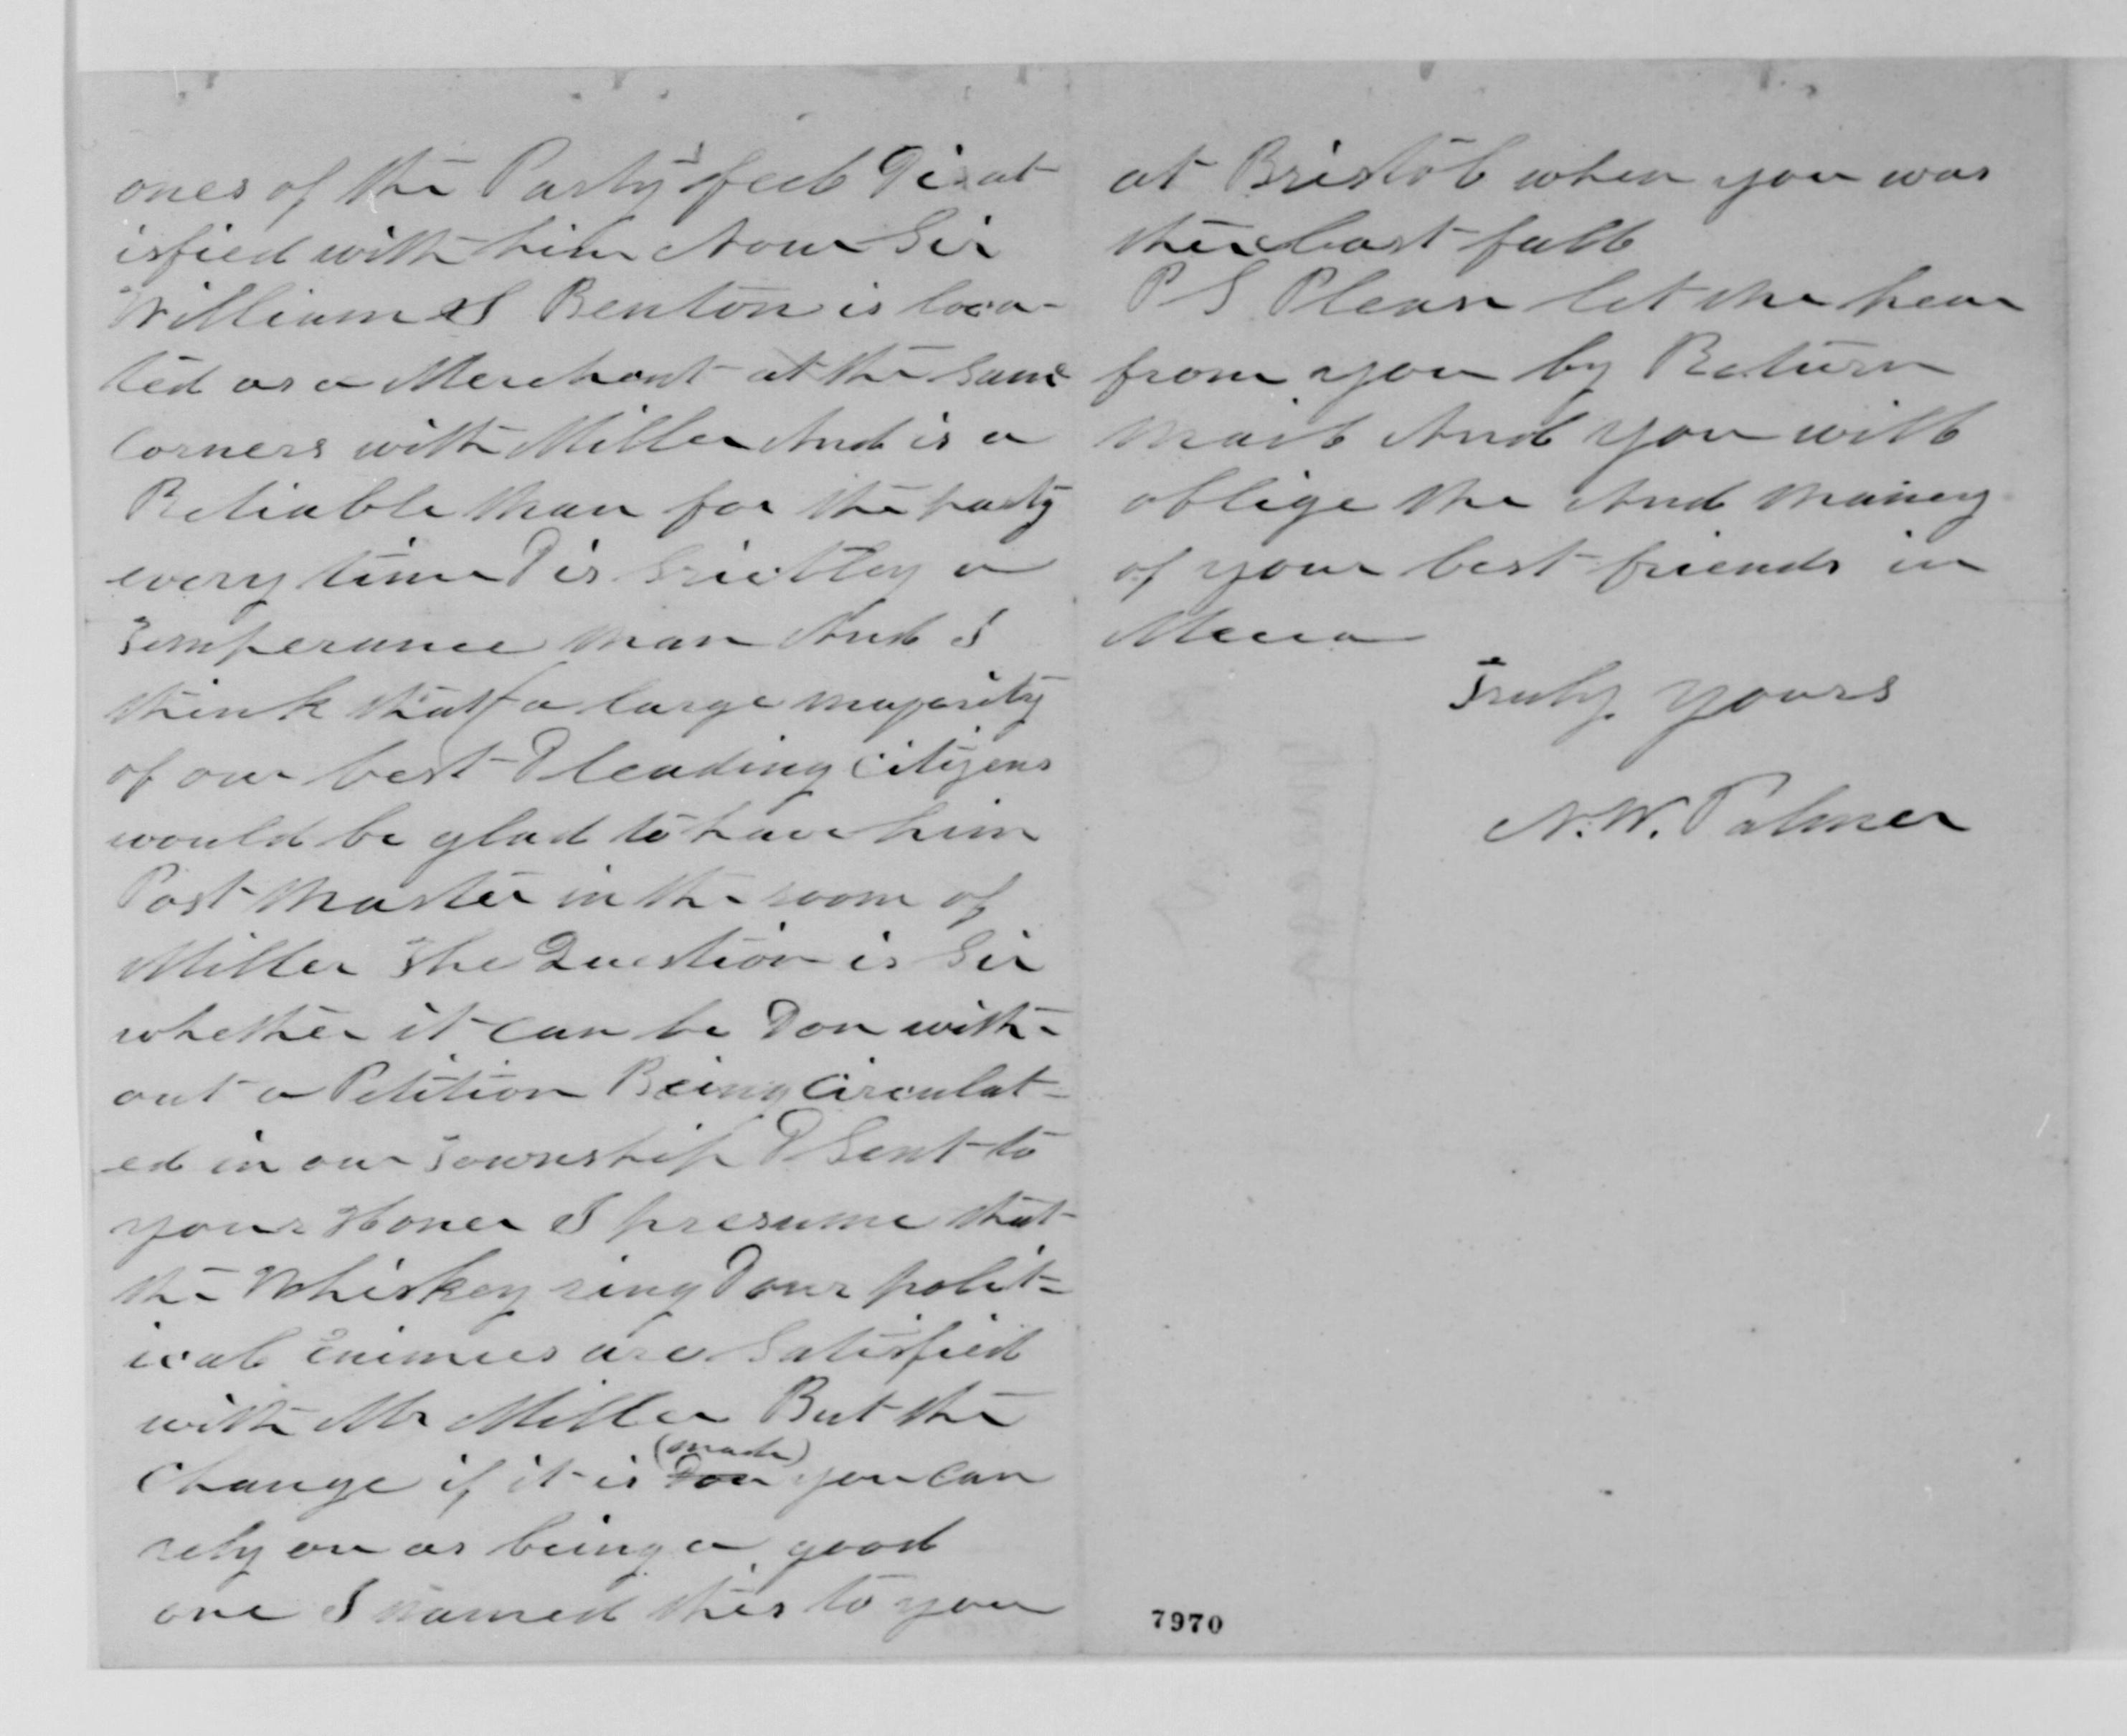 ones of the Party's feel Disat-
isfied with him Now Sir
William S Benton is loca-
ted as a Merchant at the same
Corners with Miller And is a
Reliable man for the party
every time & is Srictley a
Temperance man And I
think that a large majority
of our best & leading citizens
would be glad to have him
Post Master in the room of
Miller The Question is Sir
whether it can be Don with-
out a Petition Being Circulat-
ed in our Township & Sent to
your Honer I presume that
the Whiskey ring & our polit-
ical Enimies are Satisfied
with Mr Miller But the
(made)
Change if it is Don you can
rely on as being a good
one I named this to you
at Bristol when you was
their last fall
P S Please let me hear
from you by Return
mail And you will
oblige me And maney
of your best friends in
Mecca
Truly yours
N. W. Palmer
7970